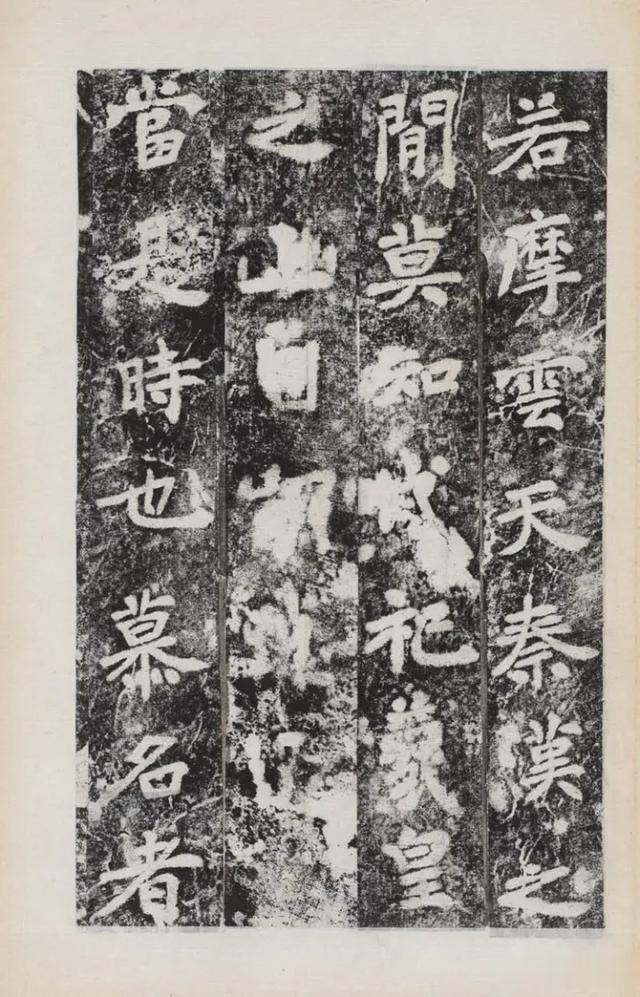 若摩雲天秦漢之
閒莫知祀羲皇
之自
當是時也慕名者